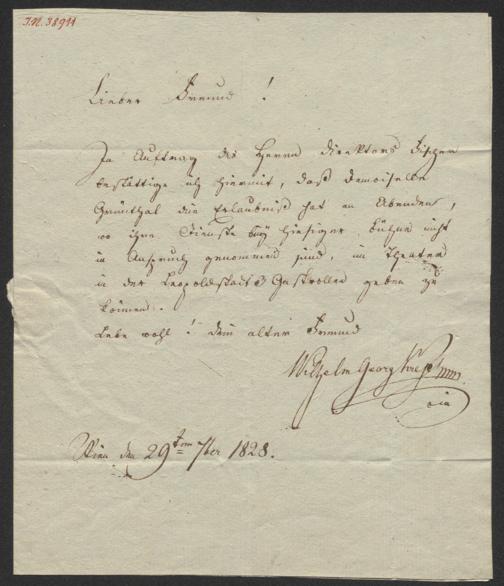 I.N. 38911
Lieber Freund !
Im Auftrag des Herrn Direktors Fischer
bestättige ich hiermit, daß Demoiselle
Grünthal die Erlaubniß hat an Abenden,
wo ihre Dienste bey hiesiger Bühne nicht
in Anspruch genommen sind, im Theater
in der Leopoldstadt 3 Gastrollen geben zu
können.
Lebe wohl ! dein alter Freund
Wilhelm Georg
Wien den 29ten 7ber 1828.